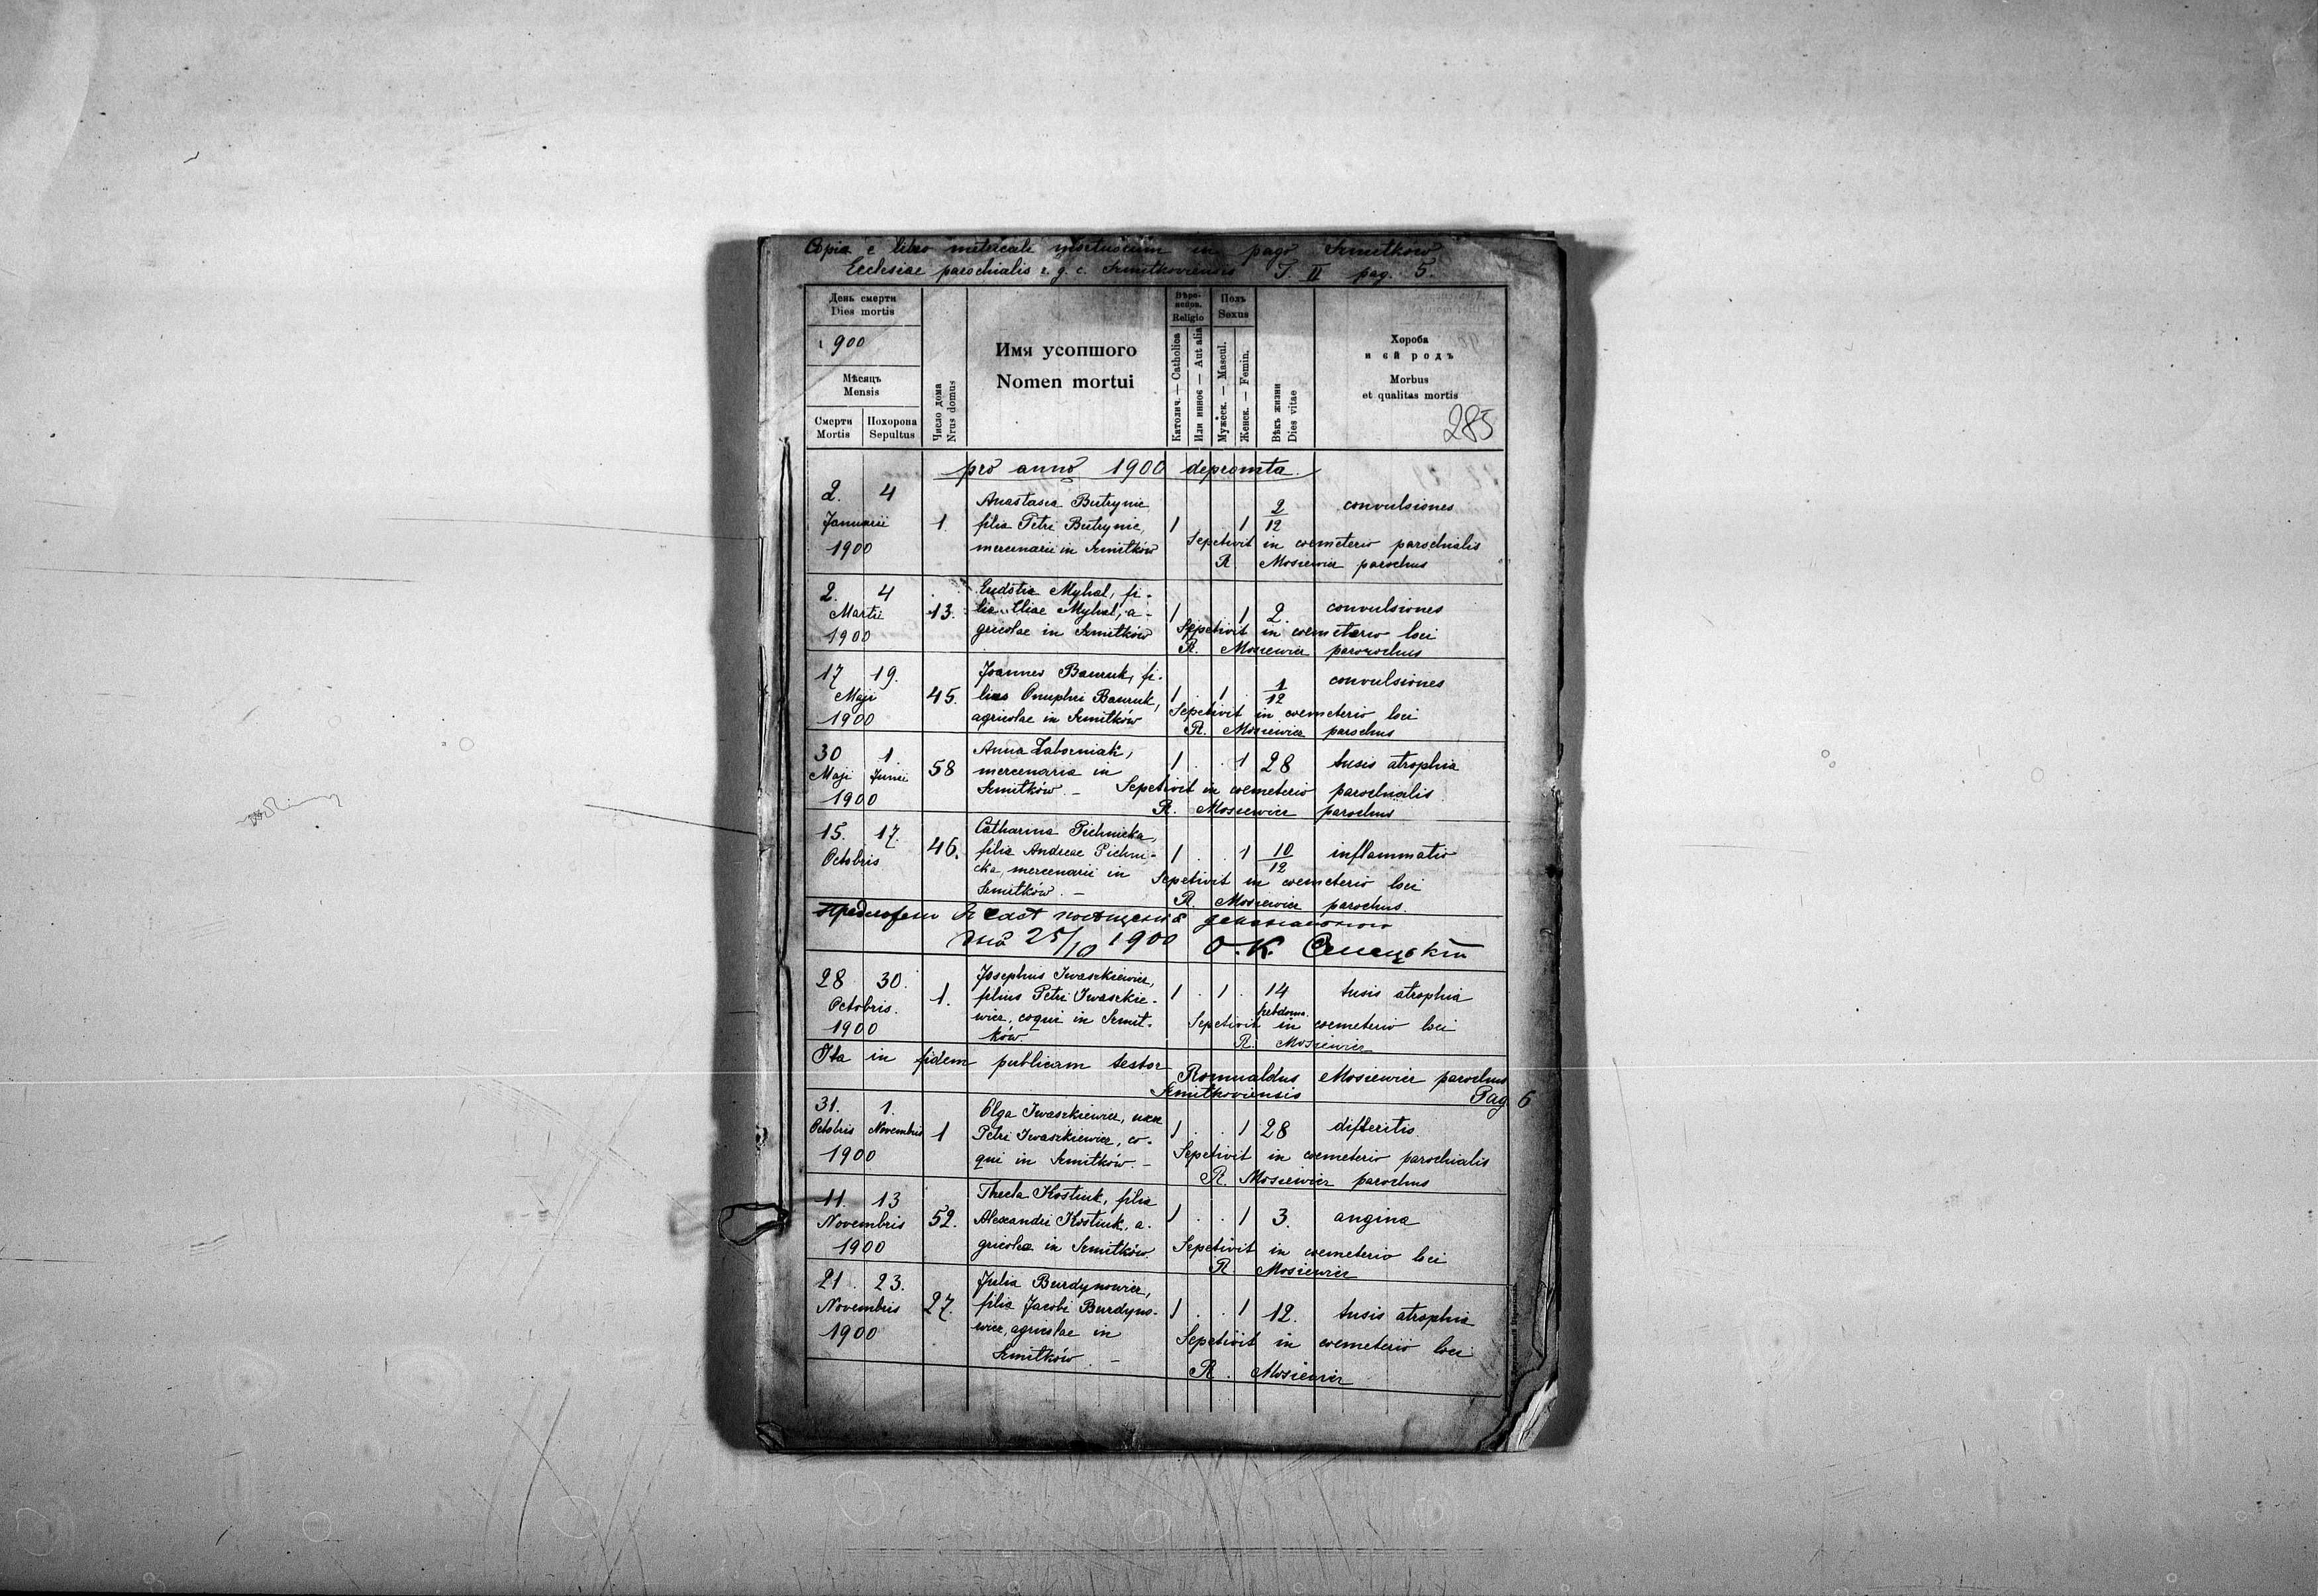 Copia e libro metricali mortuorum in pago Szmitków
Ecclesiae parochialis r. g. c. Szmitkoviensis T. II pag. 5.
День смерти
Dies mortis
1900
Мѣсяць
Mensis
Смерти
Mortis
Похорона
Sepultus
Число дома
Nrus domus
Имя усопшого
Nomen mortui
Религio
Religio
Католич. — Catholica
Или инноє — Aut alia
Полъ
Sexus
Мужеск. — Mascul.
Женск. — Femin.
Вѣкъ жизни
Dies vitae
Хороба
и єй родъ
Morbus
et qualitas mortis
285
pro anno 1900 depromta
2. 4 Januarii 1900
1.
Anastasia Butrynie
filia Petri Butrynie,
mercenarii in Szmitków
1 . . 1 2/12 convulsiones
Sepelivit in coemeterio parochialis
R. Mosiewicz parochus
2. 4 Martii 1900
13.
Eudotia Myhal, fi-
lia Eliae Myhal, a-
gricolae in Szmitków
1 1 2. convulsiones
Sepelivit in coemeterio loci
R. Mosiewicz parorochus
17 19. Maji 1900
45.
Joannes Bauruk, fi-
lius Onuphri Bauruk,
agricolae in Szmitków
1 . 1 . 1/12 convulsiones
Sepelivit in coemeterio loci
R. Mosiewicz parochus
30 Maji 1. Junii 1900
58
Anna Zaborniak,
mercenaria in
Szmitków. –
1 . . 1 28 tusis atrophia
Sepelivit in coemeterio parochialis
R. Mosiewicz parochus
15. 17. Octobris
46.
Catharina Pichnicka,
filia Andreae Pichni-
cka, mercenarii in
Szmitków. –
1 . . 1 10/12 inflammatio
Sepelivit in coemeterio loci
R. Mosiewicz parochus.
дня 25/10 1900 О. К.
28 30. Octobris. 1900
1.
Josephus Iwaszkiewicz,
filius Petri Iwaszkie-
wicz, coqui in Szmit-
ków.
1 . 1 . 14 hebdoma. tusis atrophia
Sepelivit in coemeterio loci
R. Mosiewicz
Ita in fidem publicam testor Romualdus Mosiewicz parochus
Szmitkoviensis
Pag. 6
31. Octobris 1. Novembris 1900
1
Olga Iwaszkiewicz, uxor
Petri Iwaszkiewicz, co-
qui in Szmitków. –
1 . . 1 28 difteritis
Sepelivit in coemeterio parochialis
R. Mosiewicz parochus
11. 13 Novembris 1900
52.
Thecla Kostiuk, filia
Alexandri Kostiuk, a-
gricolae in Szmitków.
1 . . 1 3. angina
Sepelivit in coemeterio loci
R. Mosiewicz
21. 23. Novembris 1900
27.
Julia Burdynowicz,
filia Jacobi Burdyno-
wicz, agricolae in
Szmitków. –
1 . . 1 12. tusis atrophia
Sepelivit in coemeterio loci
R. Mosiewicz